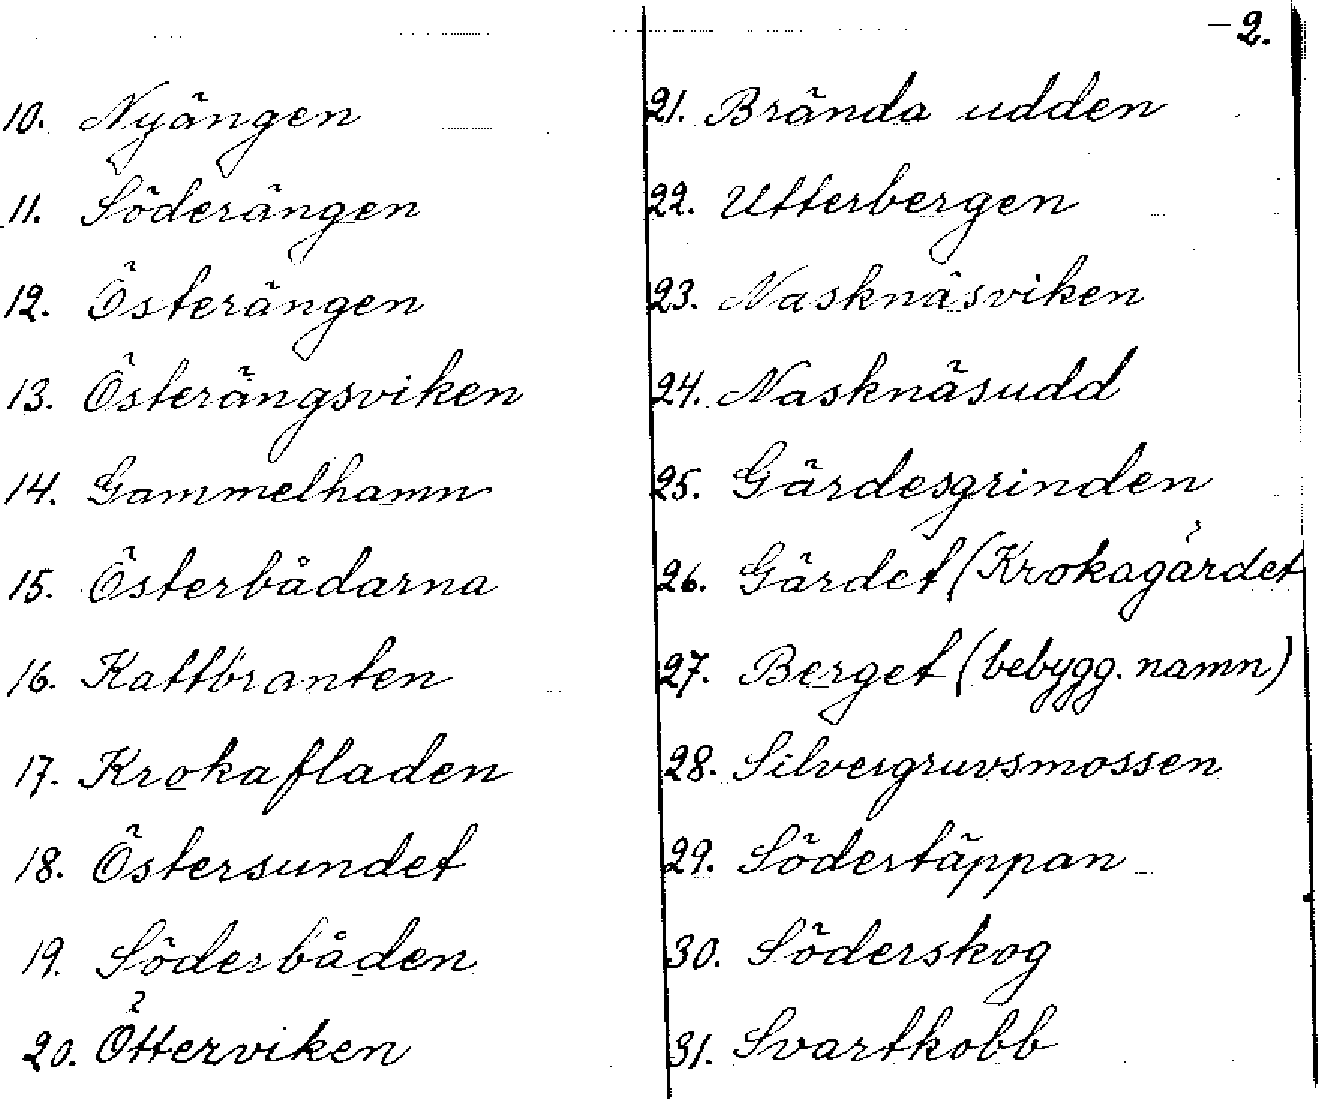 - 2.
10. Nyängen
11. Söderängen
12. Österängen
13. Österängsviken
14. Gammelhamn
15. Österbådarna
16. Kattbranten
17. Krokafladen
18. Östersundet
19. Söderbåden
20. Ötterviken
21. Brända udden
22. Utterbergen
23. Nasknäsviken
24. Nasknäsudd
25. Gärdesgrinden
26. Gärdet (Krokagärdet
27. Berget (bebygg. namn)
28. Silvergruvsmossen
29. Södertäppan
30. Söderskog
31. Svartkobb